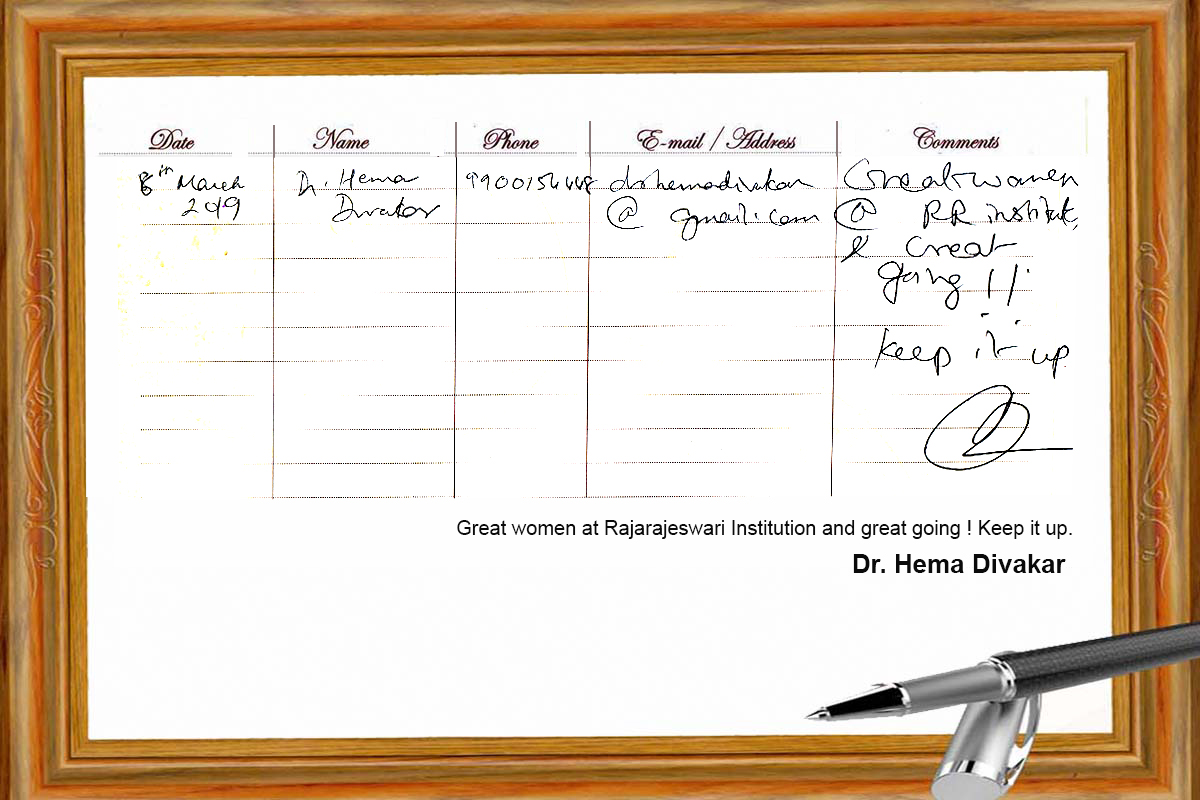 Date Name Phone E-mail / Address Comments
8th March Dr. Hema 9900154448 drhemadivakar Great women
2019 Divakar @ gmail.com @ RR institute,
& Great
going !!
keep it up
Great women at Rajarajeswari Institution and great going ! Keep it up.
Dr. Hema Divakar